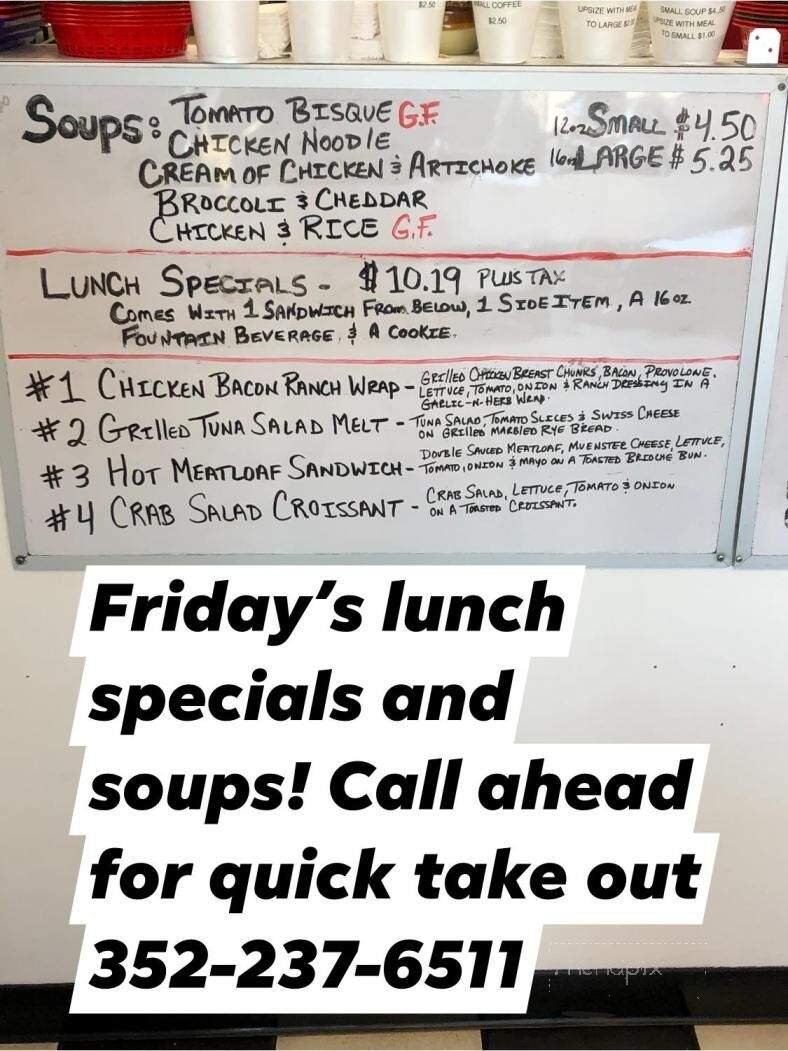 $2.50
SMALL COFFEE
$2.50
UPSIZE WITH MEAL
TO LARGE $2.
SMALL SOUP $4.50
UPSIZE WITH MEAL
TO SMALL $1.00
Soups: TOMATO BISQUE G.F.
CHICKEN NOODLE
CREAM OF CHICKEN & ARTICHOKE
BROCCOLI & CHEDDAR
CHICKEN & RICE G.F.
12oz SMALL $4.50
16oz LARGE $5.25
LUNCH SPECIALS - $10.19 PLUS TAX
COMES WITH 1 SANDWICH FROM BELOW, 1 SIDE ITEM, A 16 oz
FOUNTAIN BEVERAGE, & A COOKIE.
#1 CHICKEN BACON RANCH WRAP - GRILLED CHICKEN BREAST CHUNKS, BACON, PROVOLONE,
LETTUCE, TOMATO, ONION & RANCH DRESSING IN A
GARLIC-N-HERB WRAP.
#2 GRILLED TUNA SALAD MELT - TUNA SALAD, TOMATO SLICES & SWISS CHEESE
ON GRILLED MARBLED RYE BREAD.
#3 HOT MEATLOAF SANDWICH - DOUBLE SAUCED MEATLOAF, MUENSTER CHEESE, LETTUCE,
TOMATO, ONION & MAYO ON A TOASTED BRIOCHE BUN.
#4 CRAB SALAD CROISSANT - CRAB SALAD, LETTUCE, TOMATO & ONION
ON A TOASTED CROISSANT.
Friday's lunch
specials and
soups! Call ahead
for quick take out
352-237-6511
menupix